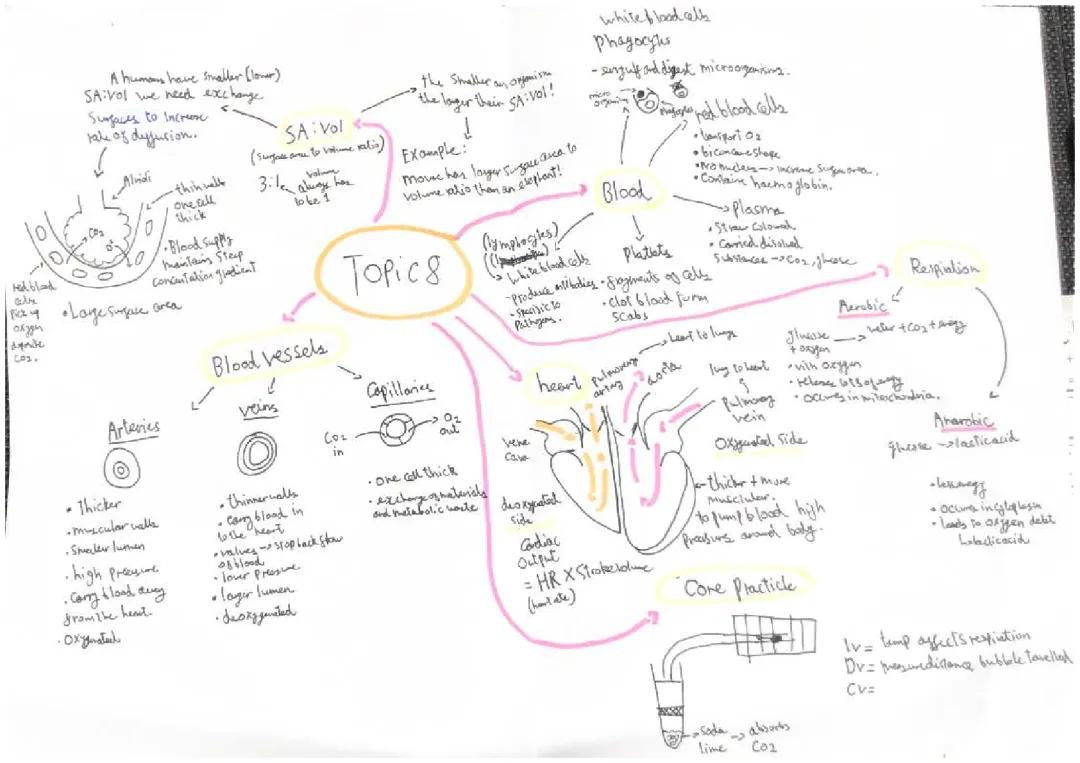 TOPIC 8
SA:Vol
(Surface area to volume ratio)
3:1
volume
always has
to be 1
A humans have smaller (lower)
SA:Vol we need exchange
Surfaces to increase
rate of diffusion.
Alvioli
thin walls
one cell
thick
CO2
O2
• Blood supply
maintains steep
concentration gradient
Red blood
cells
pick up
oxygen
deposite
CO2.
• Large surface area
the smaller an organism
the larger their SA:Vol!
Example:
Mouse has larger surface area to
volume ratio than an elephant!
Blood
white blood cells
Phagocytes
- engulf and digest microorganisms.
micro
phagocytes
red blood cells
• transport O2
• biconcave shape
• no nucleus → increase surface area.
• Contains haemoglobin.
Plasma
• Straw coloured
• Carried disolved
substances → CO2, glucose
Platlets
• fragments of cells
• clot blood form
scabs
(lymphocytes)
White blood cells
- produce antibodies
- specific to
pathogens.
Respiration
Aerobic
glucose
+ oxygen
→ water + CO2 + energy
• with oxygen
• release lots of energy
• occurs in mitochondria.
Anarobic
glucose → lactic acid
• less energy
• occurs in cytoplasm
• leads to oxygen debt
↳ lactic acid
heart
pulmonary
artery
→ heart to lungs
aorta
lung to heart
pulmonary
vein
Oxygenated side
vena
cava
deoxygenated
side
Cardiac
Output
= HR X Stroke volume
(heart rate)
thicker + more
musclular.
to pump blood high
pressure around body.
Blood vessels
Arteries
• Thicker
• muscular walls
• smaller lumen
• high pressure
• Carry blood away
from the heart.
• Oxygenated
veins
• thinner walls
• carry blood in
to the heart
• valves → stop back flow
of blood
• lower pressure
• larger lumen
• deoxygenated
Capillaries
CO2
in
O2
out
• one cell thick
• exchange of materials
and metabolic waste
Core practicle
soda
lime
→ absorbs
CO2
Iv = temp affects respiration
Dv = measure distance bubble travelled
Cv =